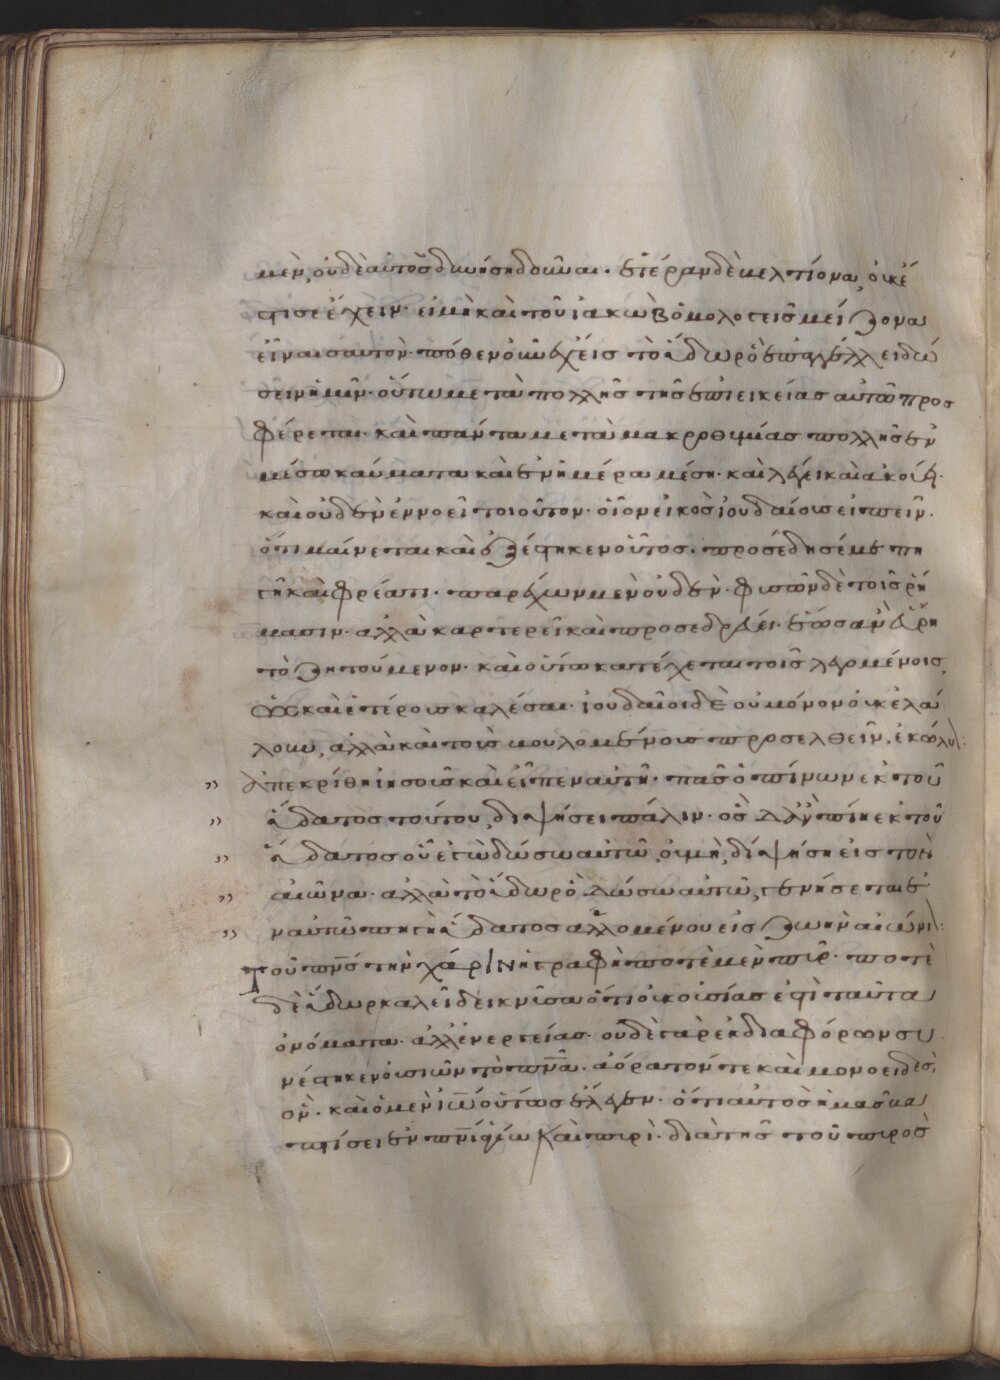 μεν, οὐδὲ αὐτὸς δυνήση δοῦναι· ἑτέραν δὲ βελτίονα, οὐκ ἔ
φησε ἔχειν· εἰ μὴ καὶ τοῦ ἰακὼβ ὁμολογεῖς μείζονα
εἶναι σαυτόν· πόθεν οὖν ἔχεις τὸ ὕδωρ ὃ ἐπαγγέλλει δώ
σειν ἡμῖν· οὕτω μετὰ πολλῆς τῆς ἐπιεικείας αὐτῶ προσ
φέρεται· καὶ πάντα μετὰ μακροθυμίας πολλῆς ἐν
μέσω καύματα καὶ ἐν ἡμέρα μέση· καὶ λέγει καὶ ἀκούει·
καὶ οὐδὲν ἐννοεῖ τοιοῦτον· οἷον εἰκὸς ἰουδαίους εἰπεῖν·
ὅτι μαίνεται καὶ ἐξέστηκεν οὗτος· προσέδησέ με πη
γῆ καὶ φρέατι· παρέχων μὲν οὐδὲν· φυσῶν δὲ τοῖς ῥή
μασιν· ἀλλὰ καρτερεῖ καὶ προσεδρεύει· ἕως ἂν εὕρη
τὸ ζητούμενον· καὶ οὕτω κατέχεται τοῖς λεγομένοις,
ὡς καὶ ἑτέρους καλέσαι· ἰουδαῖοι δὲ οὐ μόνον οὐκ ἐκάλ
λουν, ἀλλὰ καὶ τοὺς βουλομένους προσελθεῖν, ἐκώλυον:
» Ἀπεκρίθη ἰησοῦς καὶ εἶπεν αὐτῆ· πᾶς ὁ πίνων ἐκ τοῦ
» ὕδατος τούτου, διψήσει πάλιν· ὃς δ' ἂν πίη ἐκ τοῦ
» ὕδατος οὗ ἐγὼ δώσω αὐτῶ, οὐ μὴ διψήση εἰς τὸν
» αἰῶνα· ἀλλὰ τὸ ὕδωρ ὃ δώσω αὐτῶ, γενήσεται ἐ
» ν αὐτῶ πηγὴ ὕδατος ἁλλομένου εἰς ζωὴν αἰώνιον:
Τοῦ πνς τὴν χάριν ἡ γραφὴ ποτὲ μὲν πῦρ· ποτὲ
δὲ ὕδωρ καλεῖ δεικνῦσα ὅτι οὐκ οὐσίας ἐστὶ ταῦτα
ὀνόματα· ἀλλ' ἐνεργείας· οὐδὲ γὰρ ἐκ διαφόρων συ
νέστηκεν οὐσιῶν τὸ πνα· ἀόρατόν τε καὶ μονοειδὲς
ὄν· καὶ ὁ μὲν ἰω οὕτως ἔλεγεν· ὅτι αὐτὸς ἡμᾶς βα
πτίσει ἐν πνι ἁγίω καὶ πυρί· διὰ τῆς τοῦ πυρὸς